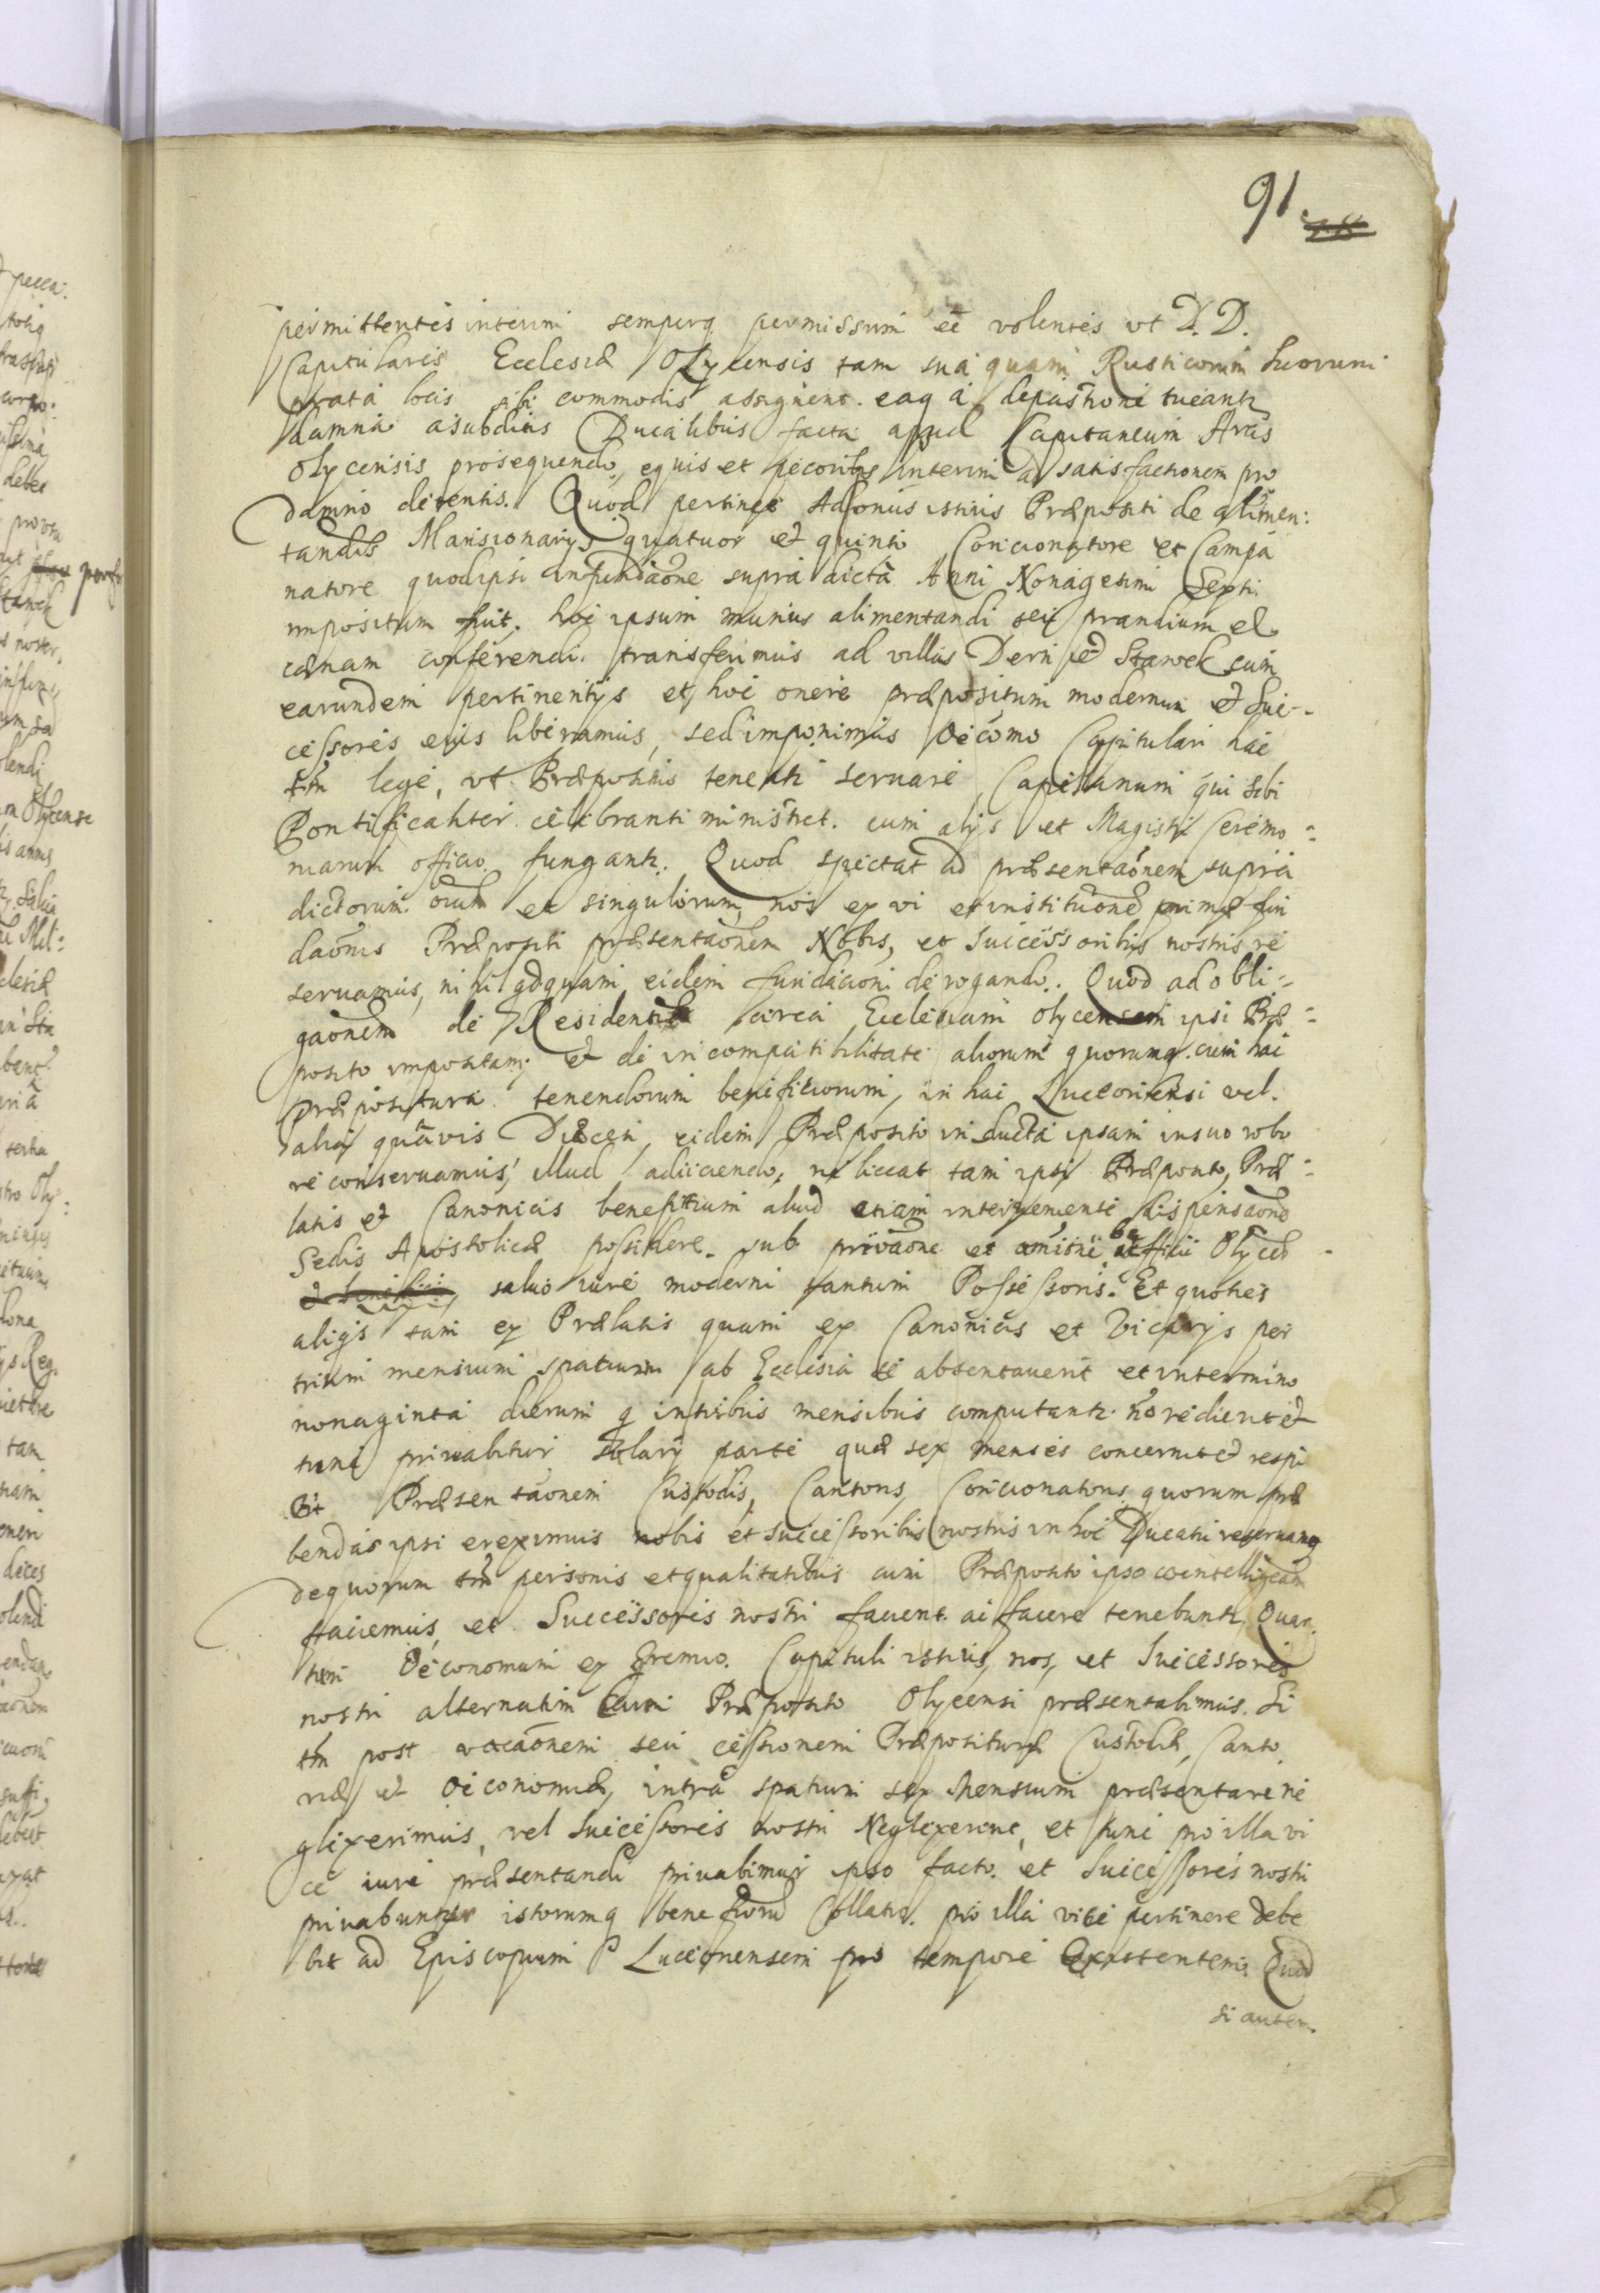 91
permittentes interim semperq permissum eē volentes vt D. D.
Capitulares Ecclesiæ Olycensis tam sua quam Rusticorum suorum
prata locis sibi commodis assignent. eaq a depastione tueantr
damna a subditis Ducalibus facta apud Capitaneum Arcis
Olycensis prosequendo, equis et pecoribus interim ad satisfactionem pro
damno detentis. Quod pertinet ad onus istius Præpositi de alimen:
tandis Mansionarijs quatuor et quinto Concionatore et Campa
natore quod ipsi in fundaōne supra dicta Anni Nonagesimi Septi.
impositum fuit. hoc ipsum munus alimentandi seu prandium et
cænam conferendi. transferimus ad villas Dern et Stawek cum
earundem pertinentijs et hoc onere præpositum modernum et Suc-
cessores eius liberamus, sed imponimus Oecōmo Capitulari hac
tm̄ lege, vt Præpositus teneatr seruare Capellanum qui sibi
Pontificaliter celibranti ministret. cum alijs et Magistri Ceremo:
niarum officio fungantr. Quod spectat ad præsentaōnem supra
dictorum oīum et singulorum, nos ex vi et institutione primæ fun
daōnis Præpositi præsentaōnem Nobis, et Successoribus nostris re
seruamus, nihil quidquam eidem fundacioni derogando. Quod ad obli-
gaōnem de Residentia circa Ecclesiam Olycensem ipsi Præ-
posito impositam; et de incompatibilitate aliorum quorumq. cum hac
Præpositura tenendorum beneficiorum, in hac Luceoriensi vel.
alia quāvis Diæcesi, eidem Præposito inducta ipsam in suo robo
re conseruamus, illud adijciendo, ne liceat tam ipsi Præposito, Præ-
latis et Canonicis beneficium aliud etiam interueniente dispensaōne
Sedis Apostolicæ possidere. sub priuaōne et amissione beneficii Olycen
et beneficii, saluo iure moderni tantum Possessoris. Et quoties
aliqs tam ex Prælatis quam ex Canonicis et Vicarijs per
trium mensium spatium ab Ecclesia se absentauerit et intermino
nonaginta dierum q in tribus mensibus computantr nō redierit et
tunc priuabitur salarij parte quæ sex menses concernit et respi
cit Præsentaōnem Custodis, Cantoris, Concionatoris quorum præ
bendas ipsi ereximus nobis et successoribus nostris in hoc Ducatu reseruamq
de quorum tm̄ personis et qualitatibus cum Præposito ipso cointelligeam
faciemus, et Successores nostri facient. ac facere tenebuntr, Quan.
tum Oeconomum ex Gremio Capituli istius, nos, et Successores
nostri alternatim cum Præposito Olycensi præsentabimus. Si
tm̄ post vacaōnem seu cessionem Præposituræ Custodiæ, Canto
riæ et Oeconomiæ, intra spatium sex Mensium præsentare ne
glexerimus, vel Successores nostri Neglexerint, et tunc pro illa vi
ce iure præsentandi priuabimur ipso facto. et Successores nostri
priuabuntur istorumq beneficiorū Collatio. pro illa vice pertinere debe
bit ad Episcopum Luceoriensem pro tempore Existentem. Quod
si autem